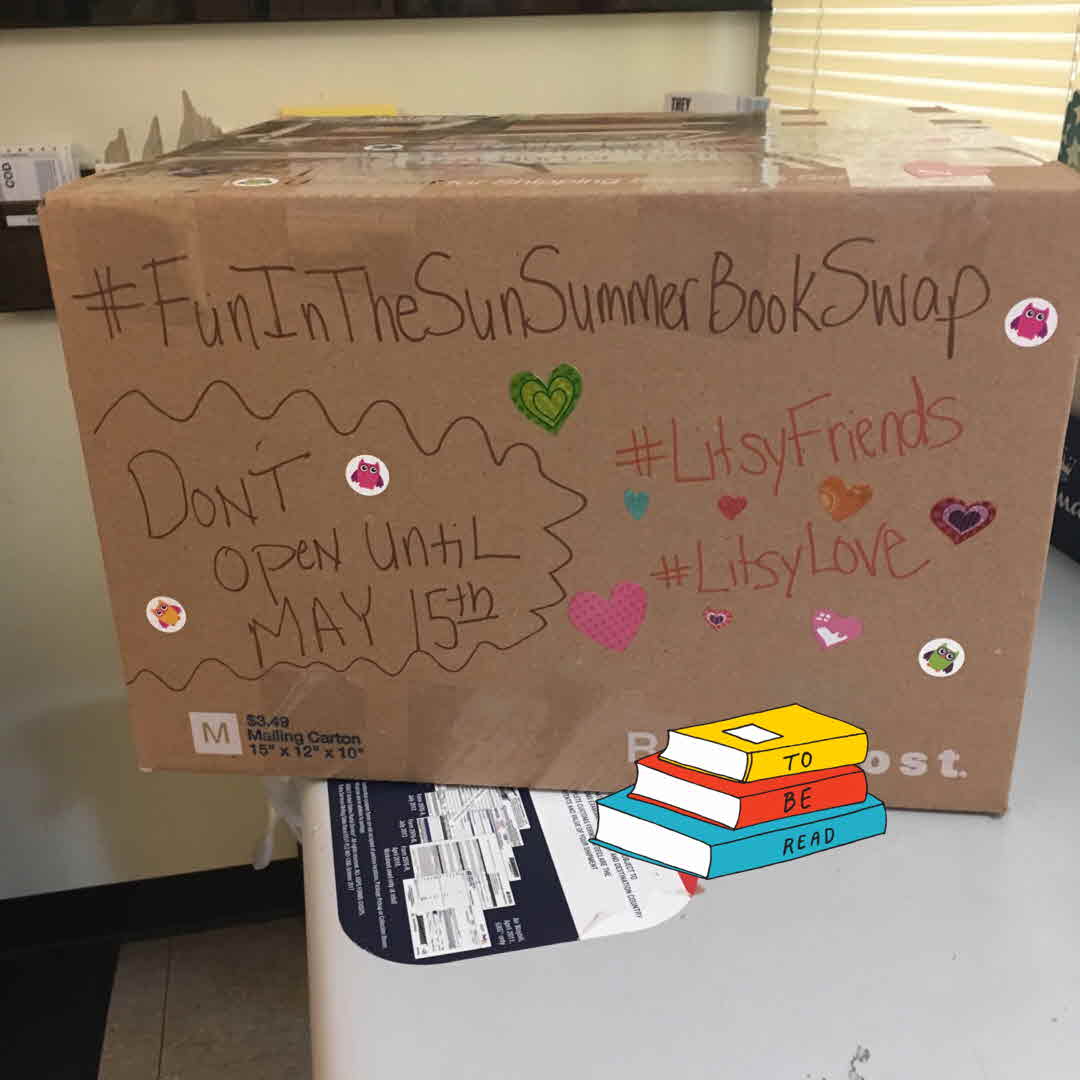 THEY
COD
#FunInTheSunSummerBookSwap
#LitsyFriends
DON'T
OPEN UNTIL
MAY 15th
#LitsyLove
M
$3.49
Mailing Carton
15" x 12" x 10"
ost.
TO
BE
READ
AND DESTINATION COUNTRY